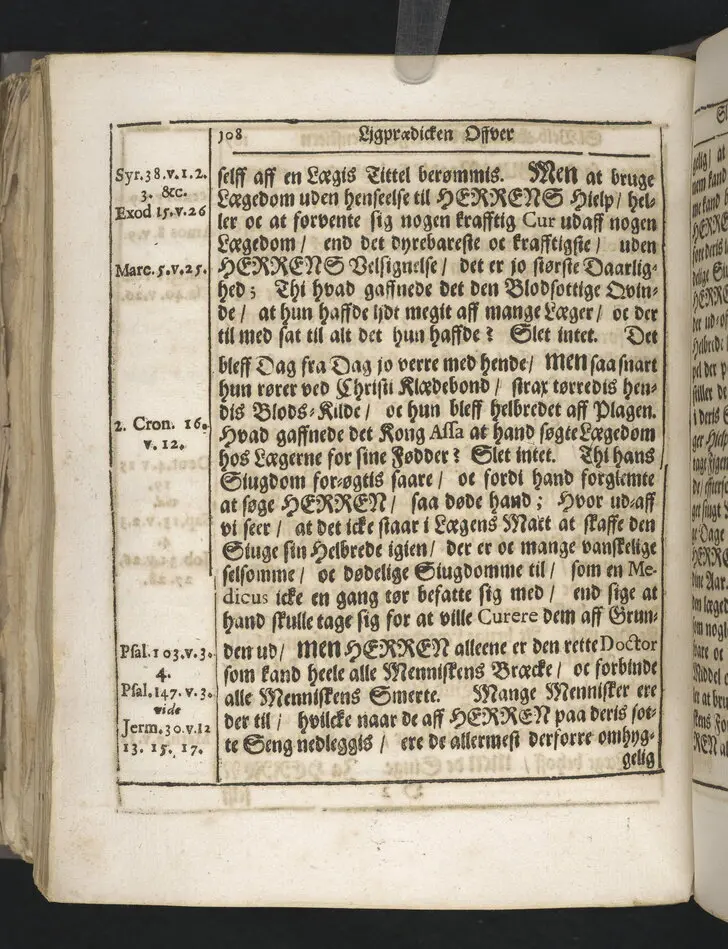 108 Ligprædicken Offver
Syr.38.v.1.2.
3. &c.
Exod 15.v.26
Marc.5.v.25.
2. Cron. 16.
v. 12.
Psal.103.v.3.
4.
Psal.147.v.3.
vide
Jerm.30.v.12
13. 15. 17.
selff aff en Lægis Tittel berømmis. Men at bruge
Lægedom uden henseelse til HERRENS Hielp/ hel-
ler oc at forvente sig nogen krafftig Cur udaff nogen
Lægedom/ end det dyrebareste oc krafftigste/ uden
HERRENS Velsignelse/ det er jo største Daarlig-
hed; Thi hvad gaffnede det den Blodsottige Qvin-
de/ at hun haffde lidt megit aff mange Læger/ oc der
til med sat til alt det hun haffde? Slet intet. Det
bleff Dag fra Dag jo verre med hende/ men saa snart
hun rører ved Christi Klædebond/ strax tørredis hen-
dis Blods-Kilde/ oc hun bleff helbredet aff Plagen.
Hvad gaffnede det Kong Assa at hand søgte Lægedom
hos Lægerne for sine Fødder? Slet intet. Thi hans
Siugdom for-øgtis saare/ oc fordi hand forglemte
at søge HERREN/ saa døde hand; Hvor ud-aff
vi seer/ at det icke staar i Lægens Mact at skaffe den
Siuge sin Helbrede igien/ der er oc mange vanskelige
selsomme/ oc dødelige Siugdomme til/ som en Me-
dicus icke en gang tør befatte sig med/ end sige at
hand skulle tage sig for at ville Curere dem aff Grun-
den ud/ men HERREN alleene er den rette Doctor
som kand heele alle Menniskens Bræcke/ oc forbinde
alle Menniskens Smerte. Mange Mennisker ere
der til/ hvilcke naar de aff HERREN paa deris sot-
te Seng nedleggis/ ere de allermest derforre omhyg-
gelig